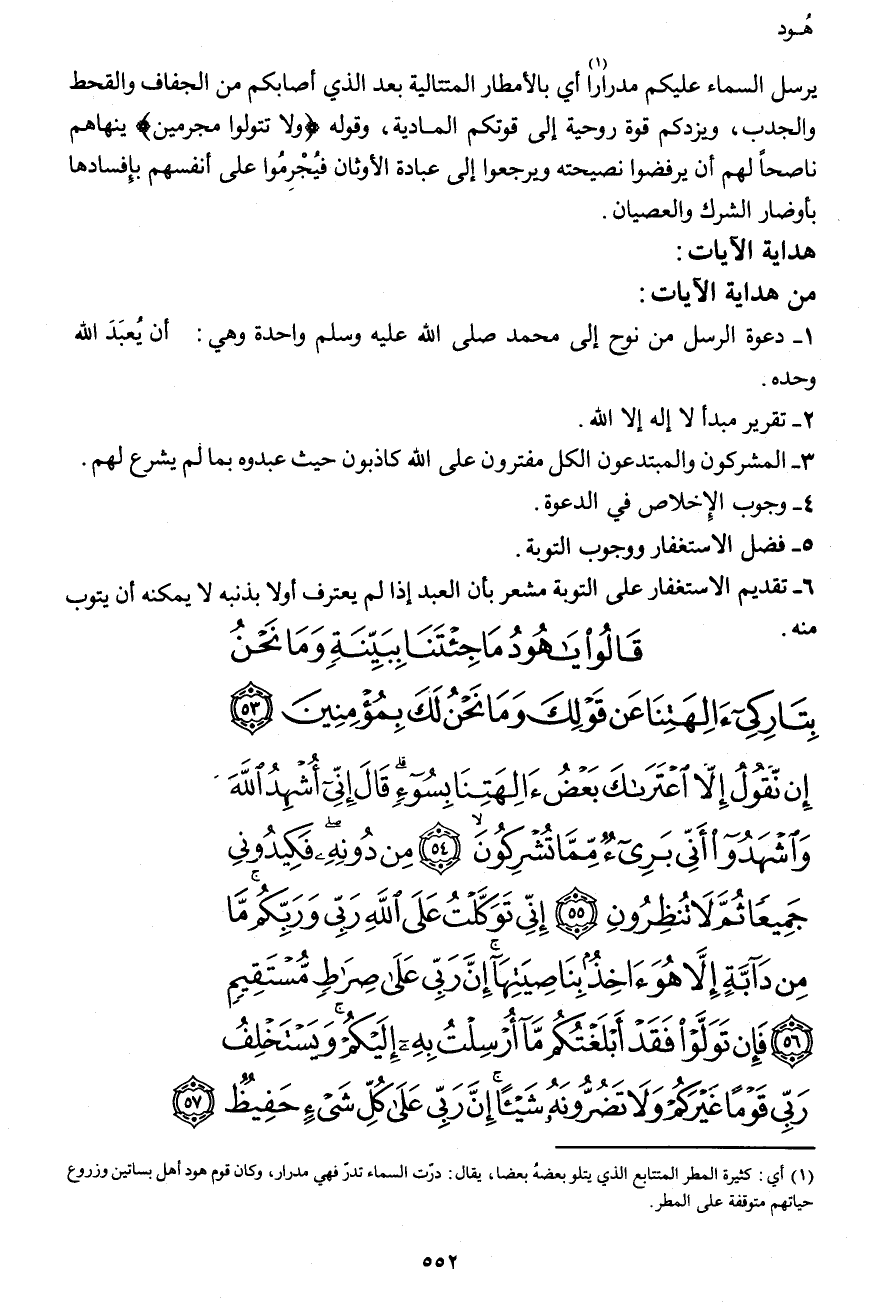 هُود
يرسل السماء عليكم مدراراً(١) أي بالأمطار المتتالية بعد الذي أصابكم من الجفاف والقحط
والجدب، ويزدكم قوة روحية إلى قوتكم المادية، وقوله ﴿ولا تتولوا مجرمين﴾ ينهاهم
ناصحاً لهم أن يرفضوا نصيحته ويرجعوا إلى عبادة الأوثان فيُجْرِمُوا على أنفسهم بإفسادها
بأوضار الشرك والعصيان.
هداية الآيات:
من هداية الآيات:
١- دعوة الرسل من نوح إلى محمد صلى الله عليه وسلم واحدة وهي: أن يُعبَدَ الله
وحده.
٢- تقرير مبدأ لا إله إلا الله.
٣- المشركون والمبتدعون الكل مفترون على الله كاذبون حيث عبدوه بما لم يشرع لهم.
٤- وجوب الإخلاص في الدعوة.
٥- فضل الاستغفار ووجوب التوبة.
٦- تقديم الاستغفار على التوبة مشعر بأن العبد إذا لم يعترف أولا بذنبه لا يمكنه أن يتوب
منه.
قَالُوا۟ يَـٰهُودُ مَا جِئْتَنَا بِبَيِّنَةٍ وَمَا نَحْنُ
بِتَارِكِىٓ ءَالِهَتِنَا عَن قَوْلِكَ وَمَا نَحْنُ لَكَ بِمُؤْمِنِينَ ٥٣
إِن نَّقُولُ إِلَّا ٱعْتَرَىٰكَ بَعْضُ ءَالِهَتِنَا بِسُوٓءٍ ۗ قَالَ إِنِّىٓ أُشْهِدُ ٱللَّهَ
وَٱشْهَدُوٓا۟ أَنِّى بَرِىٓءٌ مِّمَّا تُشْرِكُونَ ۙ ٥٤ مِن دُونِهِۦ ۖ فَكِيدُونِى
جَمِيعًا ثُمَّ لَا تُنظِرُونِ ٥٥ إِنِّى تَوَكَّلْتُ عَلَى ٱللَّهِ رَبِّى وَرَبِّكُم ۚ مَّا
مِن دَآبَّةٍ إِلَّا هُوَ ءَاخِذٌۢ بِنَاصِيَتِهَآ ۚ إِنَّ رَبِّى عَلَىٰ صِرَٰطٍ مُّسْتَقِيمٍ
٥٦ فَإِن تَوَلَّوْا۟ فَقَدْ أَبْلَغْتُكُم مَّآ أُرْسِلْتُ بِهِۦٓ إِلَيْكُمْ ۚ وَيَسْتَخْلِفُ
رَبِّى قَوْمًا غَيْرَكُمْ وَلَا تَضُرُّونَهُۥ شَيْـًٔا ۚ إِنَّ رَبِّى عَلَىٰ كُلِّ شَىْءٍ حَفِيظٌ ٥٧
(١) أي: كثيرة المطر المتتابع الذي يتلو بعضهُ بعضا، يقال: درّت السماء تدرّ فهي مدرار، وكان قوم هود أهل بساتين وزروع
حياتهم متوقفة على المطر.
٥٥٢